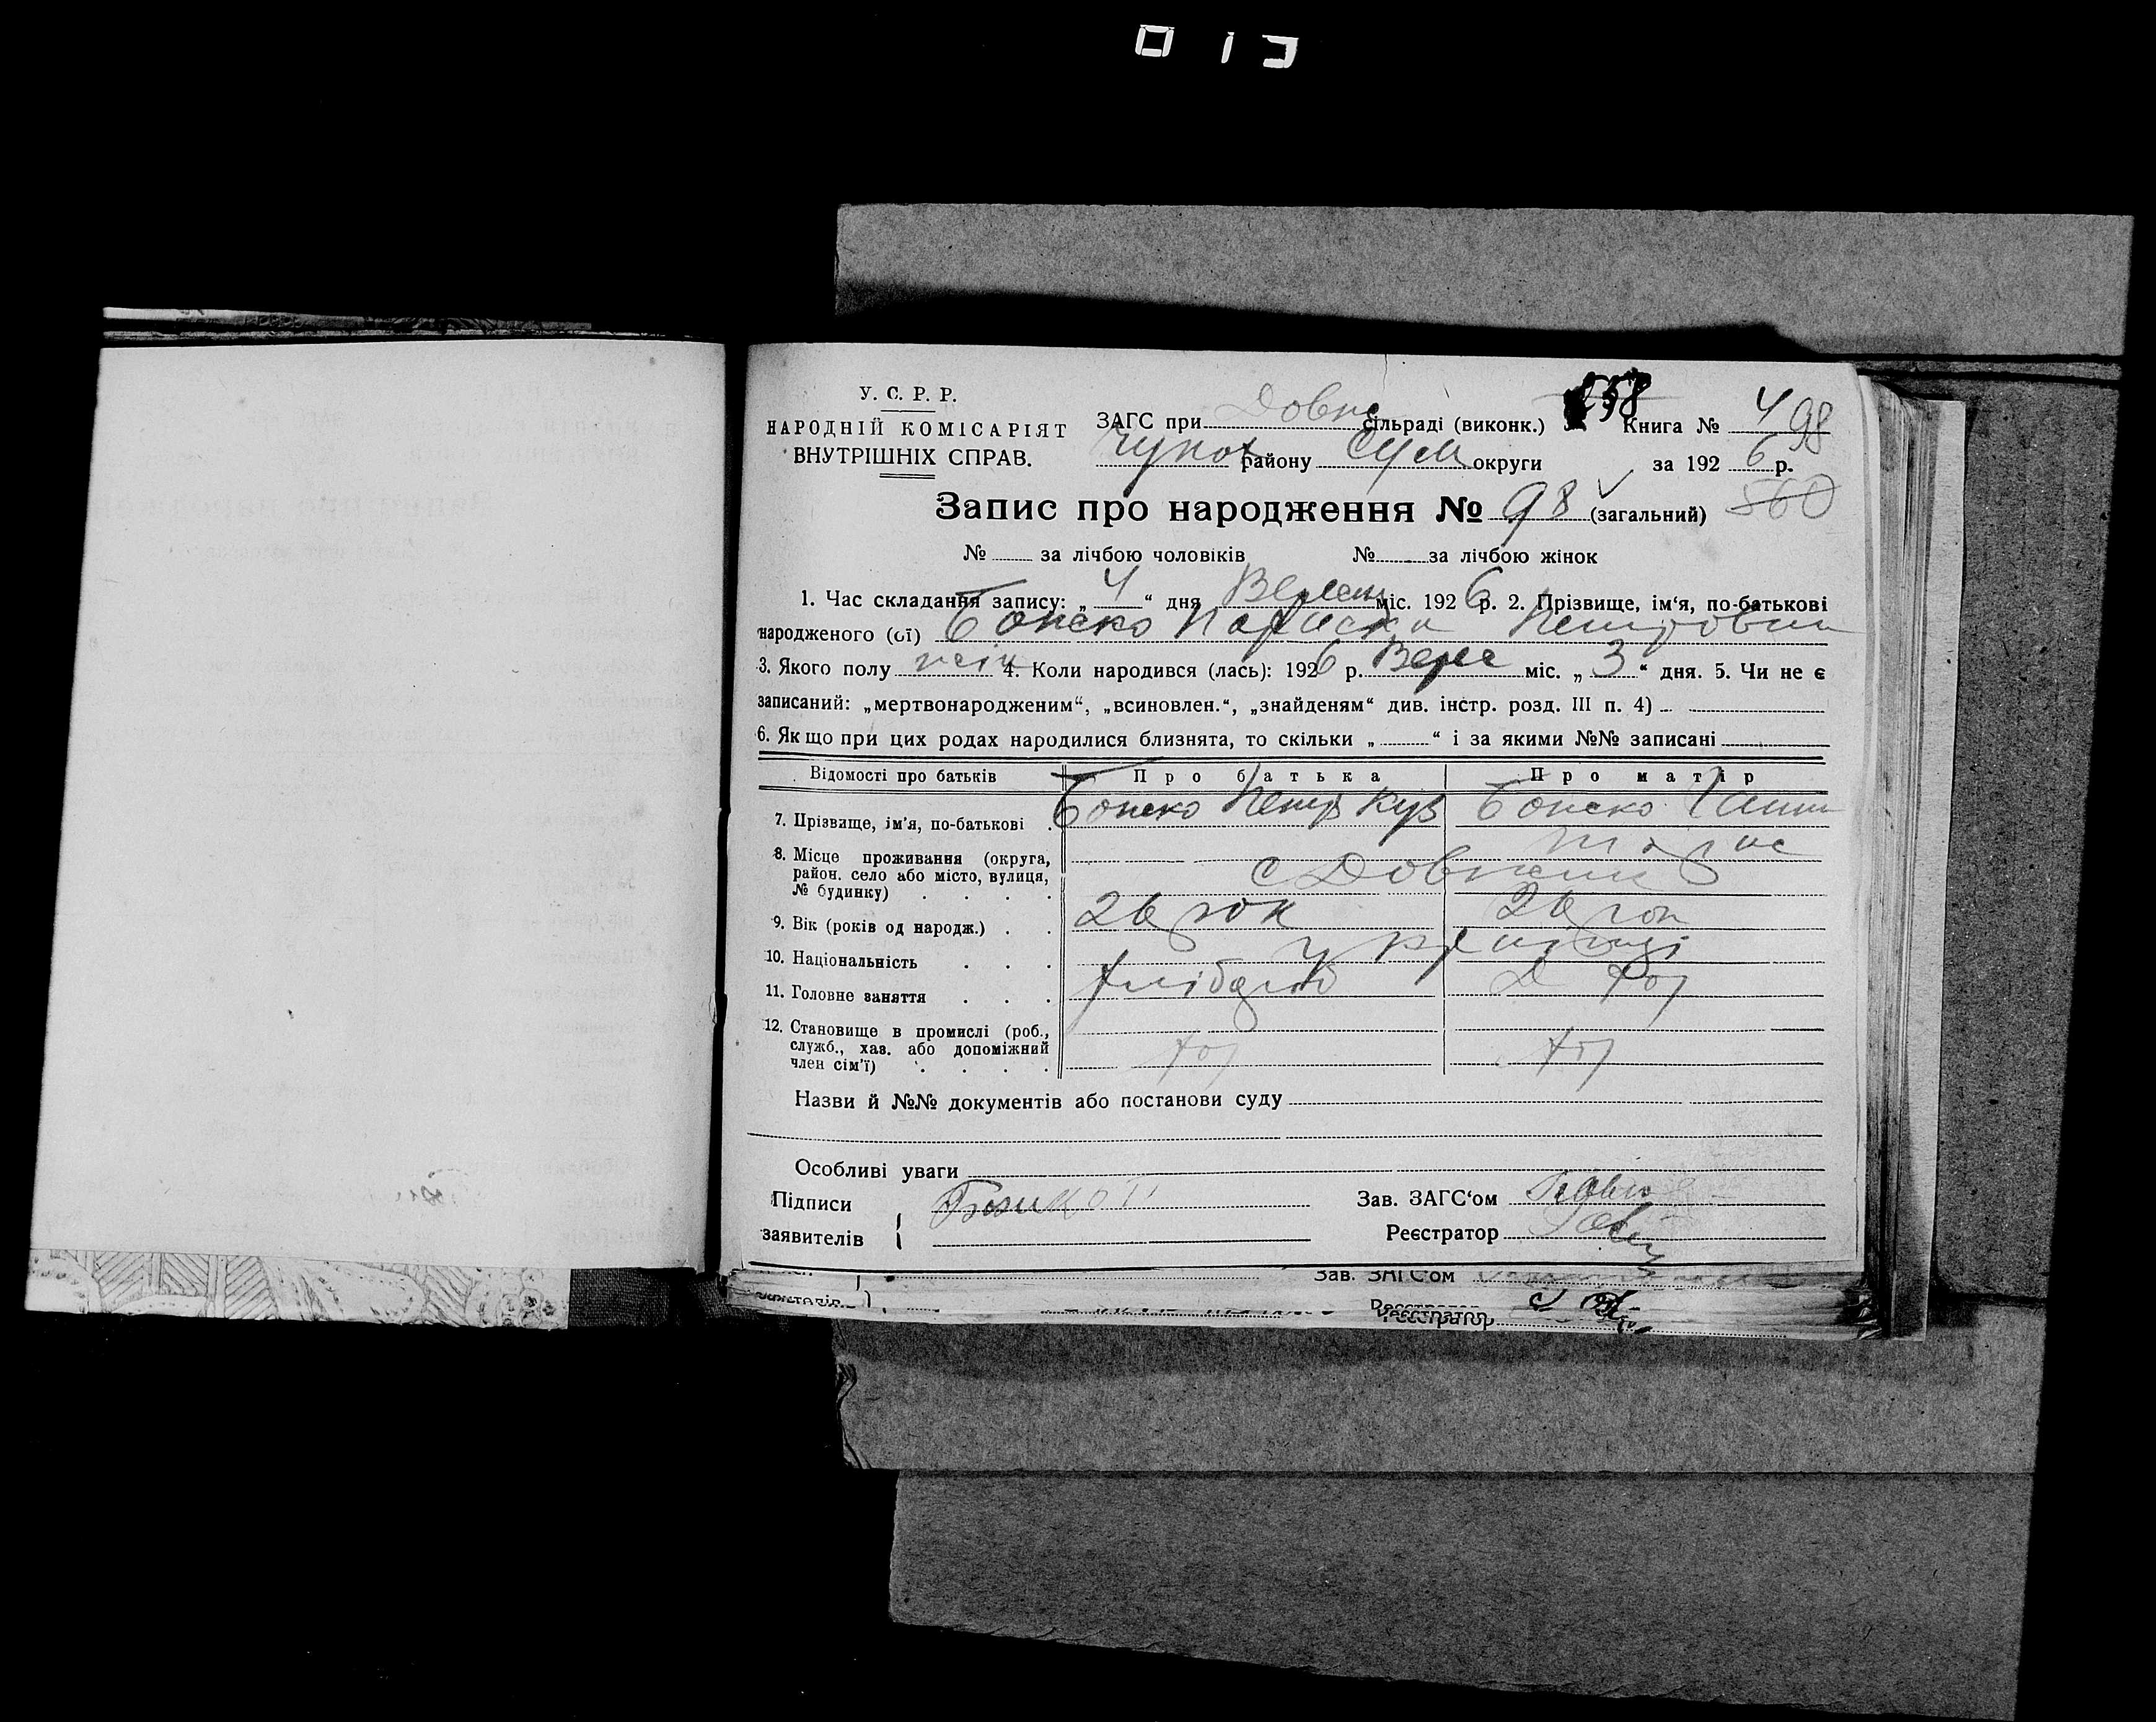 У. С. Р. Р.
НАРОДНІЙ КОМІСАРІЯТ
ВНУТРІШНІХ СПРАВ.
ЗАГС при Довж сільраді (виконк.) Книга № 4 98
району Сум округи за 1926 р.
Запис про народження № 98 (загальний) 560
№ за лічбою чоловіків № за лічбою жінок
1. Час складання запису: „ 4 “ дня Вересн міс. 1926 р. 2. Прізвище, ім‘я, по-батькові
народженого (ої) Петровна
3. Якого полу жін 4. Коли народився (лась): 1926 р. Вере міс. „ 3 “ дня. 5. Чи не є
записаний: „мертвонародженим“, „всиновлен.“, „знайденям“ див. інстр. розд. III п. 4)
6. Якщо при цих родах народилися близнята, то скільки „ “ і за якими №№ записані
Відомості про батьків Про батька Про матір
7. Прізвище, ім‘я, по-батькові . Петр Куз Ганна
8. Місце проживання (округа,
район. село або місто, вулиця,
№ будинку) . . . .
с Довжик
9. Вік (років од народж.) . . 26 рок 26 рок
10. Національність . . . українці
11. Головне заняття . . . хлібороб Д хоз
12. Становище в промислі (роб.,
служб., хаз. або допоміжний
член сім‘ї) . . . . хоз хоз
Назви й №№ документів або постанови суду
Особливі уваги
Підписи
заявителів
Зав. ЗАГС‘ом
Реєстратор
Зав. ЗАГС‘ом
Реєстратор